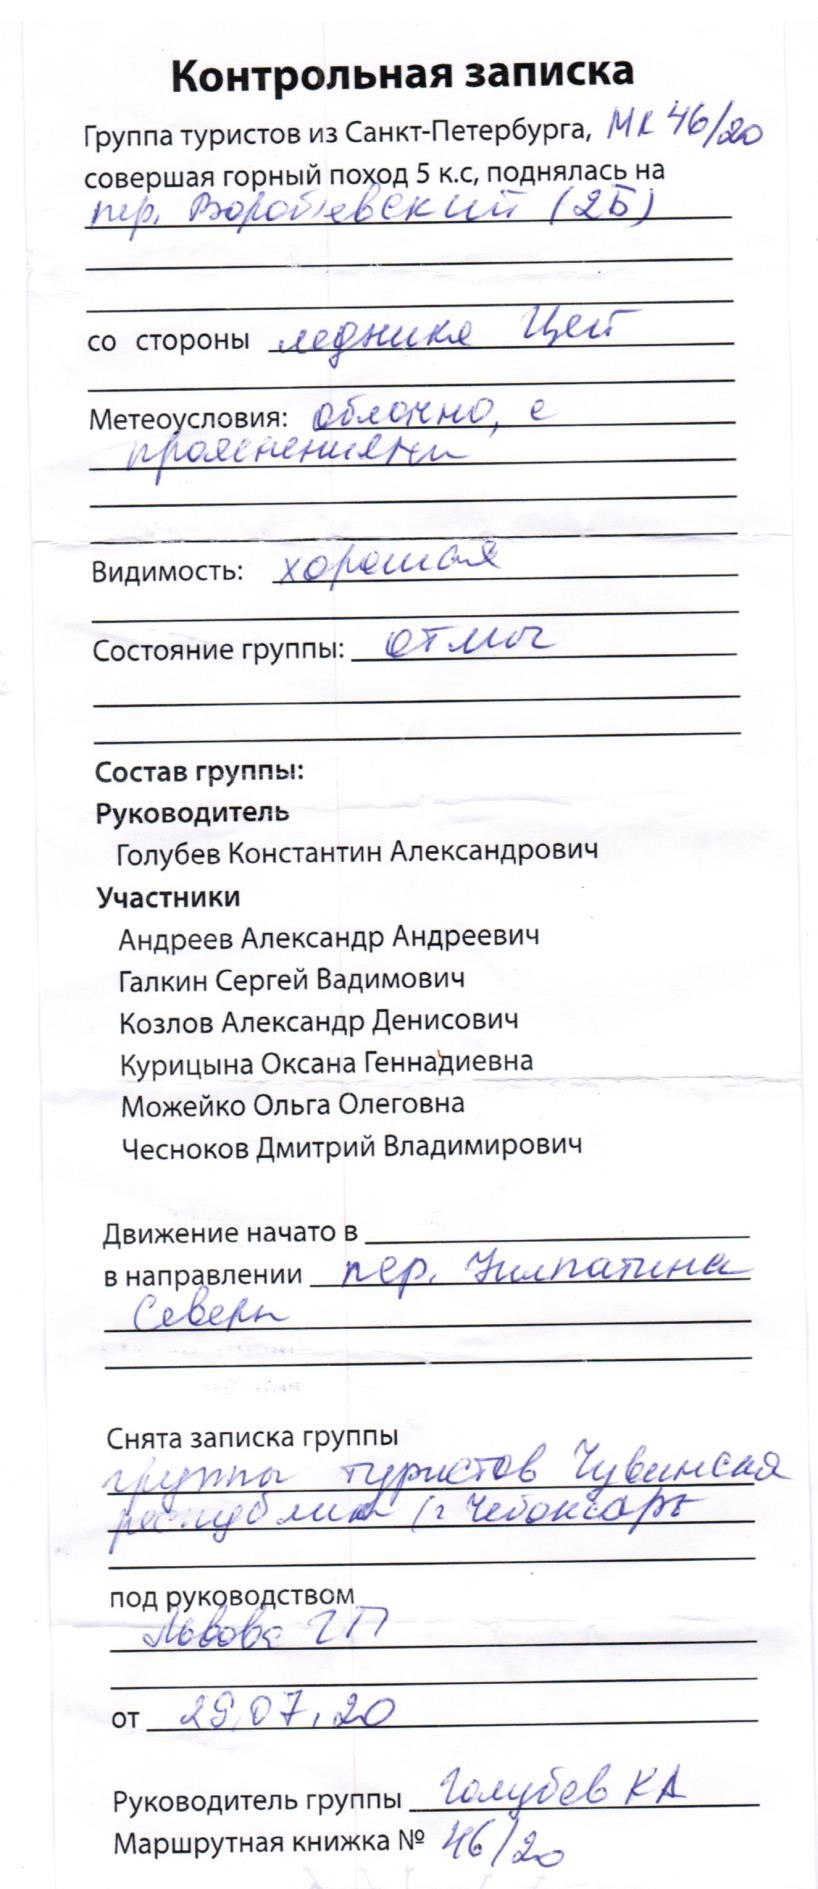 Контрольная записка
Группа туристов из Санкт-Петербурга, МК 46/20
совершая горный поход 5 к.с, поднялась на
пер. Воробьевский (2Б)
со стороны ледника Цей
Метеоусловия: облачно, с
прояснениями
Видимость: хорошая
Состояние группы:
Состав группы:
Руководитель
Голубев Константин Александрович
Участники
Андреев Александр Андреевич
Галкин Сергей Вадимович
Козлов Александр Денисович
Курицына Оксана Геннадиевна
Можейко Ольга Олеговна
Чесноков Дмитрий Владимирович
Движение начато в
в направлении пер. Чилпатина
Северн
Снята записка группы
группы туристов
республики (г Чебоксары
под руководством
Львова ГП
от 29.07.20
Руководитель группы Голубев КА
Маршрутная книжка № 46/20